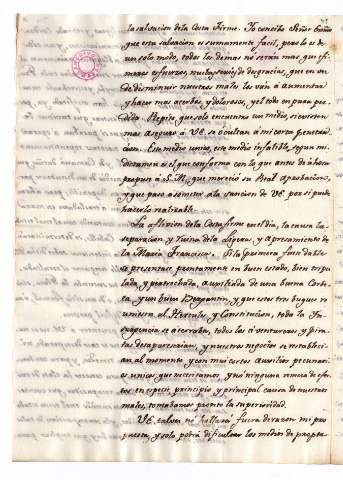 la salvacion de la Costa Firme. Yo concibo Señor Exmo
que esta salvacion es sumamente facil, pero lo es de
un solo modo, todos los demas no serán mas que efi-
meros esfuerzos, nuebas series de desgracias, que en vez
de disminuir nuestros males los ván á aumentar
y hacer mas acerbos, y dolorosos, y el todo en puan per-
dido. Repito, que solo encuentro un medio, si existen
mas aseguro á V.E. se ocultan á mi corta penetra-
cion. Este medio unico, este medio infalible, segun mi
dictamen es el que conforme con lo que antes de ahora
propuse á S.M., que mereció su Real aprobacion,
y que paso á someter á la sancion de V.E. por si puede
hacerlo realizable.
La afliccion de la Costa firme en el dia, la causa la
separacion, y ruina de la Ligera, y apresamiento de
la Maria Francisca. Si la primera fuese dable
se presentase prontamente en buen estado, bien tripu
lada, y pertrechada, auxiliada de una buena Corbe
ta, y un buen Bergantin, y que estos tres buques re
uniesen al Hercules, y Constitucion, toda la In-
surgencia se aterraba, todos los aventureros y pira
tas desaparecerian, y nuestros negocios se restablecі-
an al momento y con mui cortos auxilios pecunia-
rios unicos que necesitamos, y no ninguna remesa de efec
tos en especie, principio y principal causa de nuestros
males, tomabamos pronto la superioridad.
V.E. talvez no hallará fuera de razon mi pro
puesta, y solo podrá dificultar los medios de propor-